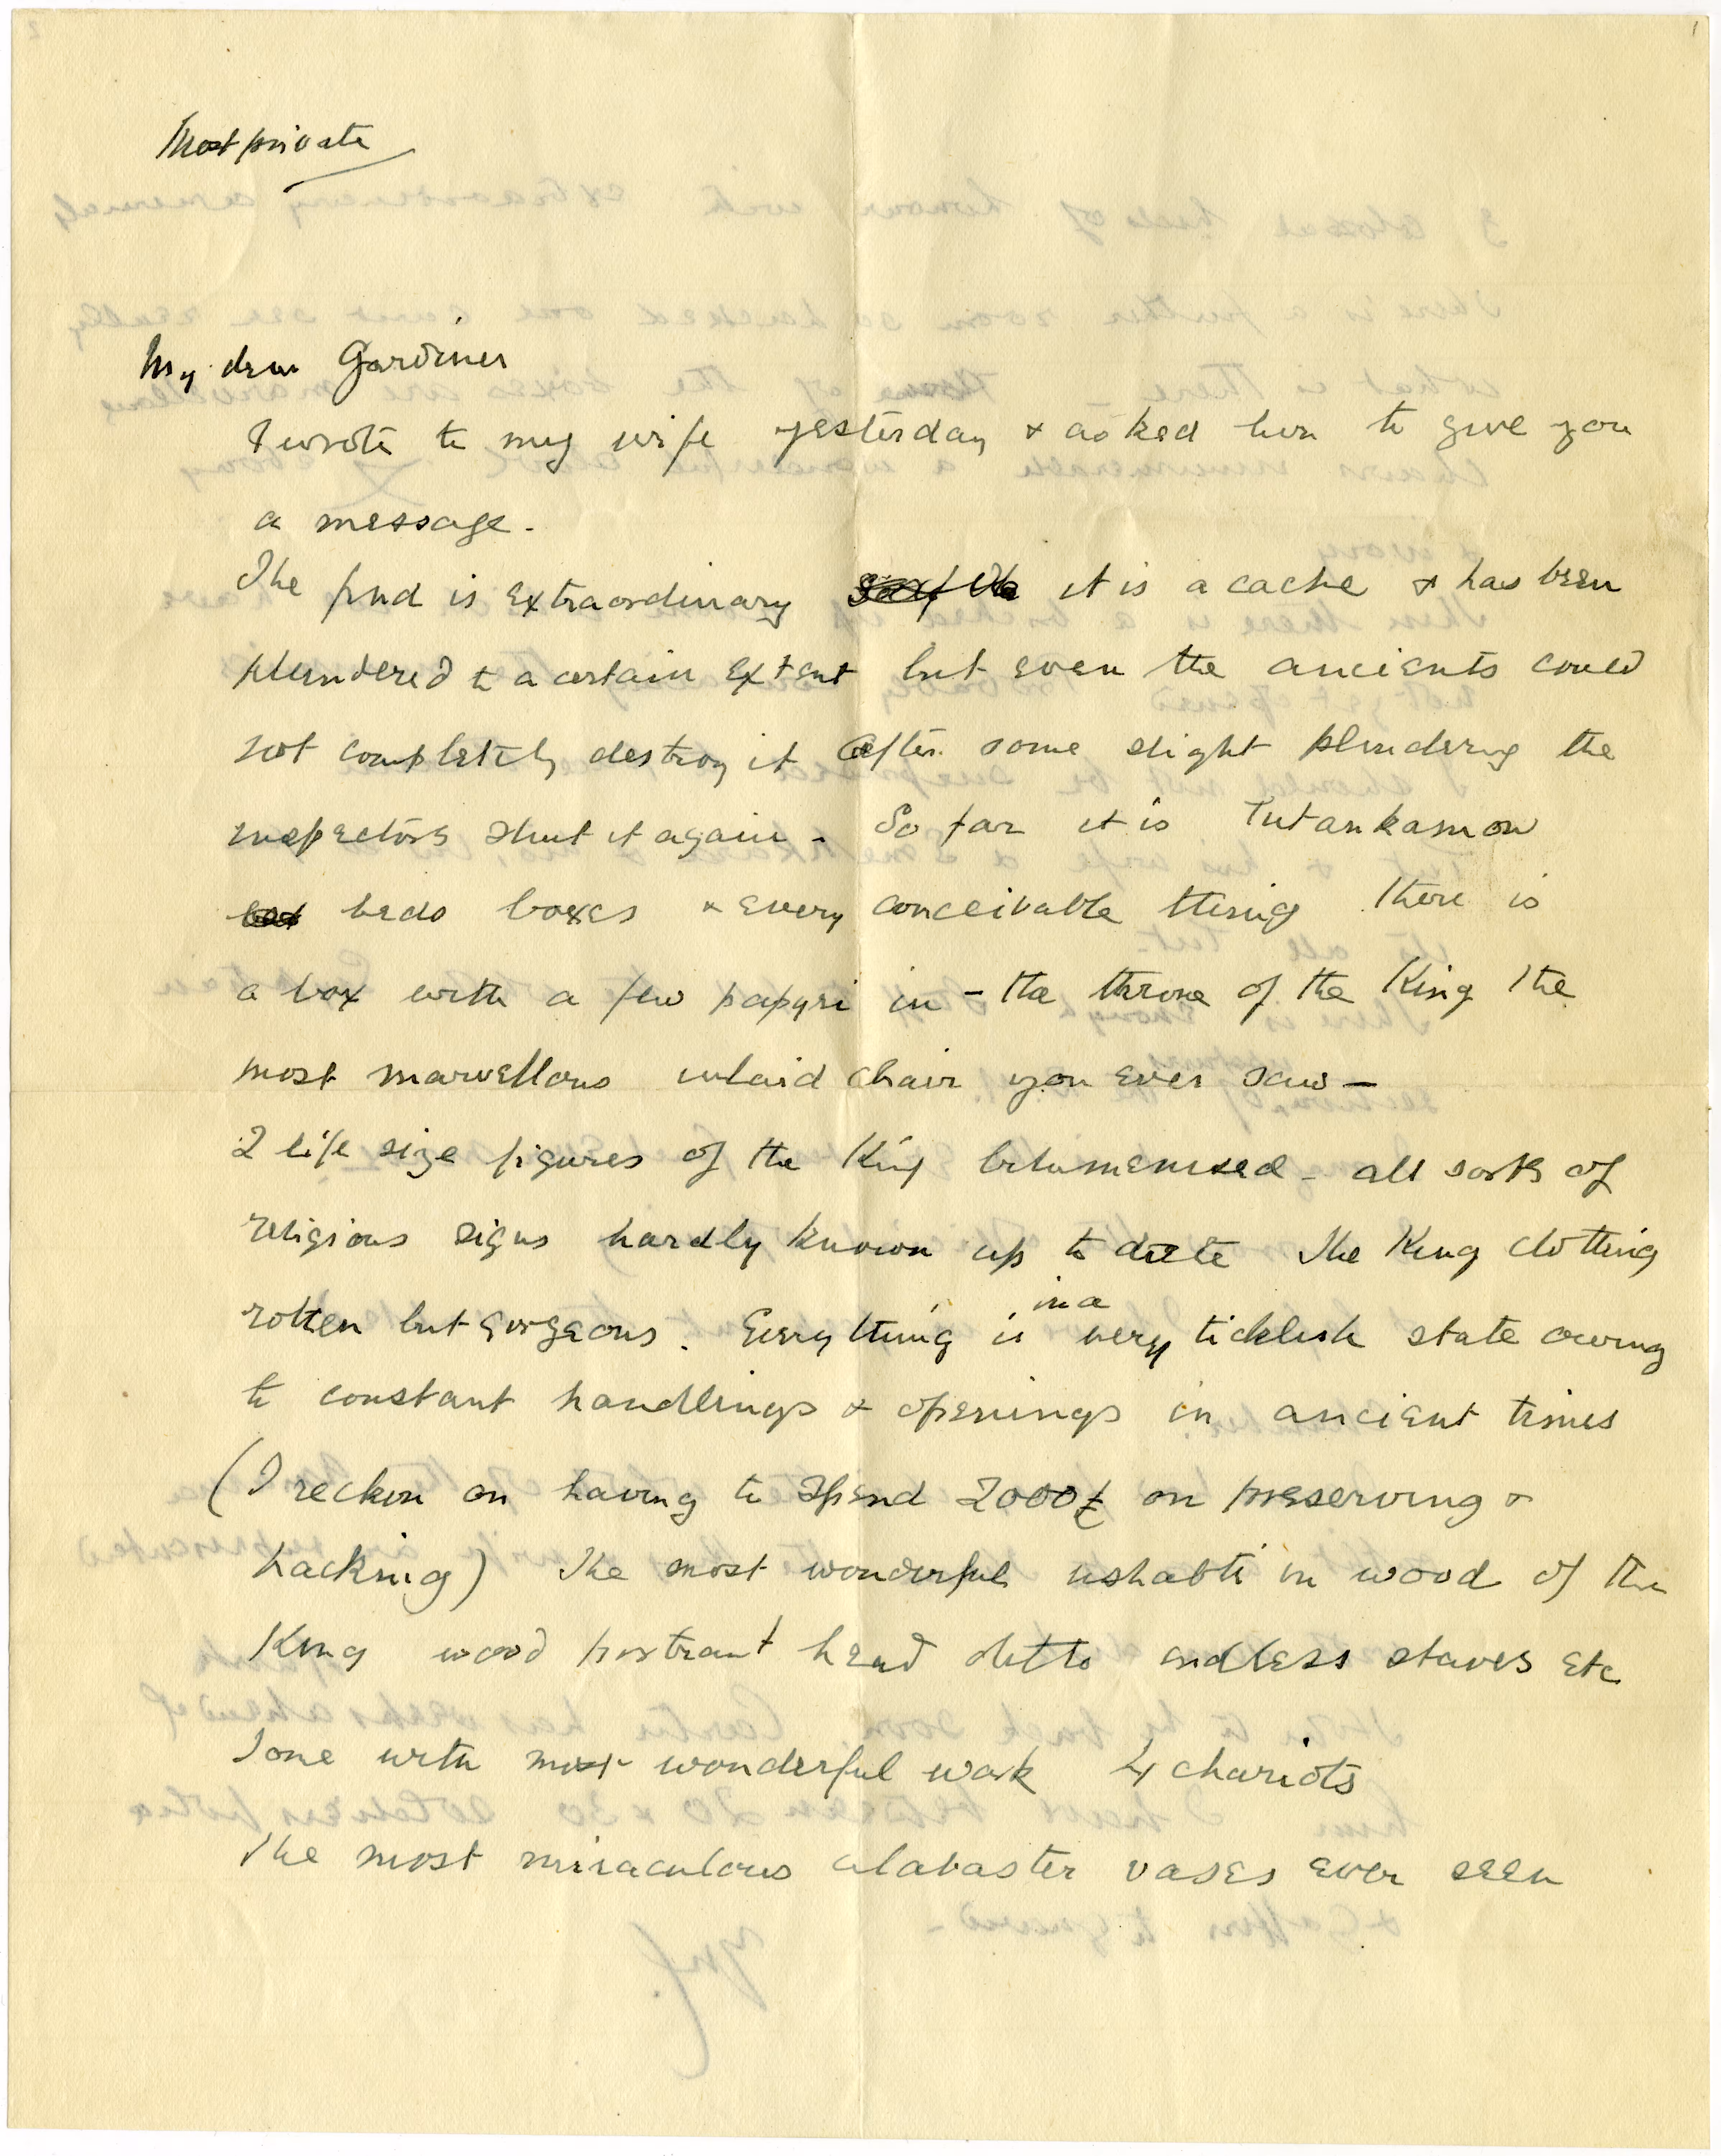 Most private
My dear Gardiner
I wrote to my wife yesterday & asked her to give you
a message.
The find is extraordinary it is a cache & has been
plundered to a certain extent but even the ancients could
not completely destroy it after some slight plundering the
inspectors shut it again - So far it is Tutankamon
beds boxes & every conceivable thing there is
a box with a few papyri in - the throne of the King the
most marvellous inlaid chair you ever saw -
2 life size figures of the King bitumenised - all sorts of
religious signs hardly known up to date The King clothing
rotten but gorgeous. Everything is in a very ticklish state owing
to constant handlings & openings in ancient times
(I reckon on having to spend 2000£ on preserving &
packing) The most wonderful ushabti in wood of the
King wood portrait head ditto endless staves etc
some with most wonderful work 4 chariots
The most miraculous alabaster vases ever seen
1
2